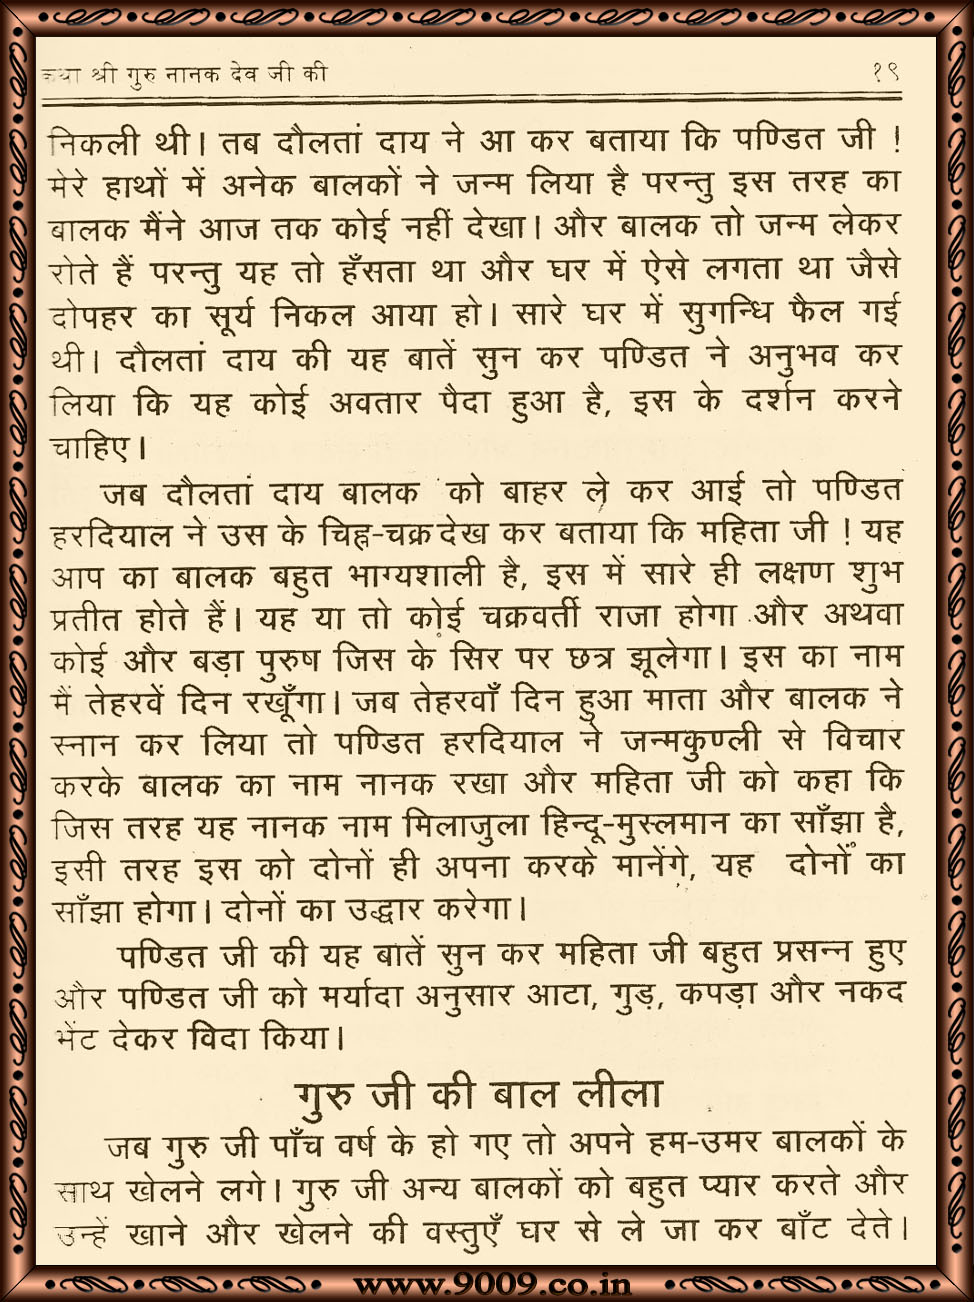 कथा श्री गुरु नानक देव जी की १९
निकली थी। तब दौलतां दाय ने आ कर बताया कि पण्डित जी !
मेरे हाथों में अनेक बालकों ने जन्म लिया है परन्तु इस तरह का
बालक मैंने आज तक कोई नहीं देखा। और बालक तो जन्म लेकर
रोते हैं परन्तु यह तो हँसता था और घर में ऐसे लगता था जैसे
दोपहर का सूर्य निकल आया हो। सारे घर में सुगन्धि फैल गई
थी। दौलतां दाय की यह बातें सुन कर पण्डित ने अनुभव कर
लिया कि यह कोई अवतार पैदा हुआ है, इस के दर्शन करने
चाहिए।
जब दौलतां दाय बालक को बाहर ले कर आई तो पण्डित
हरदियाल ने उस के चिह्न-चक्र देख कर बताया कि महिता जी ! यह
आप का बालक बहुत भाग्यशाली है, इस में सारे ही लक्षण शुभ
प्रतीत होते हैं। यह या तो कोई चक्रवर्ती राजा होगा और अथवा
कोई और बड़ा पुरुष जिस के सिर पर छत्र झूलेगा। इस का नाम
मैं तेहरवें दिन रखूँगा। जब तेहरवाँ दिन हुआ माता और बालक ने
स्नान कर लिया तो पण्डित हरदियाल ने जन्मकुण्ली से विचार
करके बालक का नाम नानक रखा और महिता जी को कहा कि
जिस तरह यह नानक नाम मिलाजुला हिन्दू-मुस्लमान का साँझा है,
इसी तरह इस को दोनों ही अपना करके मानेंगे, यह दोनों का
साँझा होगा। दोनों का उद्धार करेगा।
पण्डित जी की यह बातें सुन कर महिता जी बहुत प्रसन्न हुए
और पण्डित जी को मर्यादा अनुसार आटा, गुड़, कपड़ा और नकद
भेंट देकर विदा किया।
गुरु जी की बाल लीला
जब गुरु जी पाँच वर्ष के हो गए तो अपने हम-उमर बालकों के
साथ खेलने लगे। गुरु जी अन्य बालकों को बहुत प्यार करते और
उन्हें खाने और खेलने की वस्तुएँ घर से ले जा कर बाँट देते।
www.9009.co.in